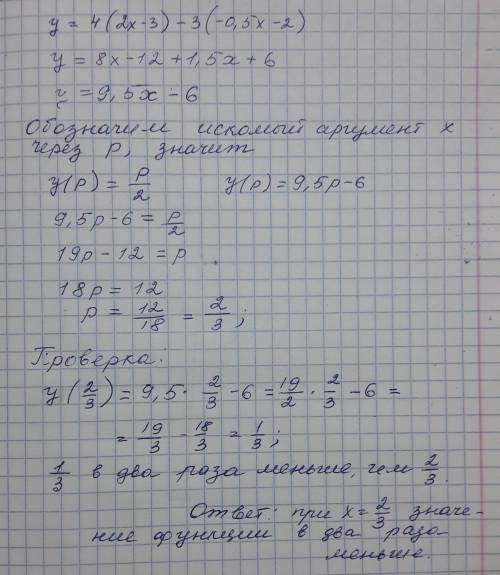 y = 4(2x-3) - 3(-0,5x-2)
y = 8x - 12 + 1,5x + 6
y = 9,5x - 6
Обозначим искомый аргумент x
через p, значит
y(p) = p/2 y(p) = 9,5p - 6
9,5p - 6 = p/2
19p - 12 = p
18p = 12
p = 12/18 = 2/3;
Проверка:
y(2/3) = 9,5 · 2/3 - 6 = 19/2 · 2/3 - 6 =
= 19/3 - 18/3 = 1/3;
1/3 в два раза меньше, чем 2/3.
Ответ: при x = 2/3 значе-
ние функции в два раза
меньше.